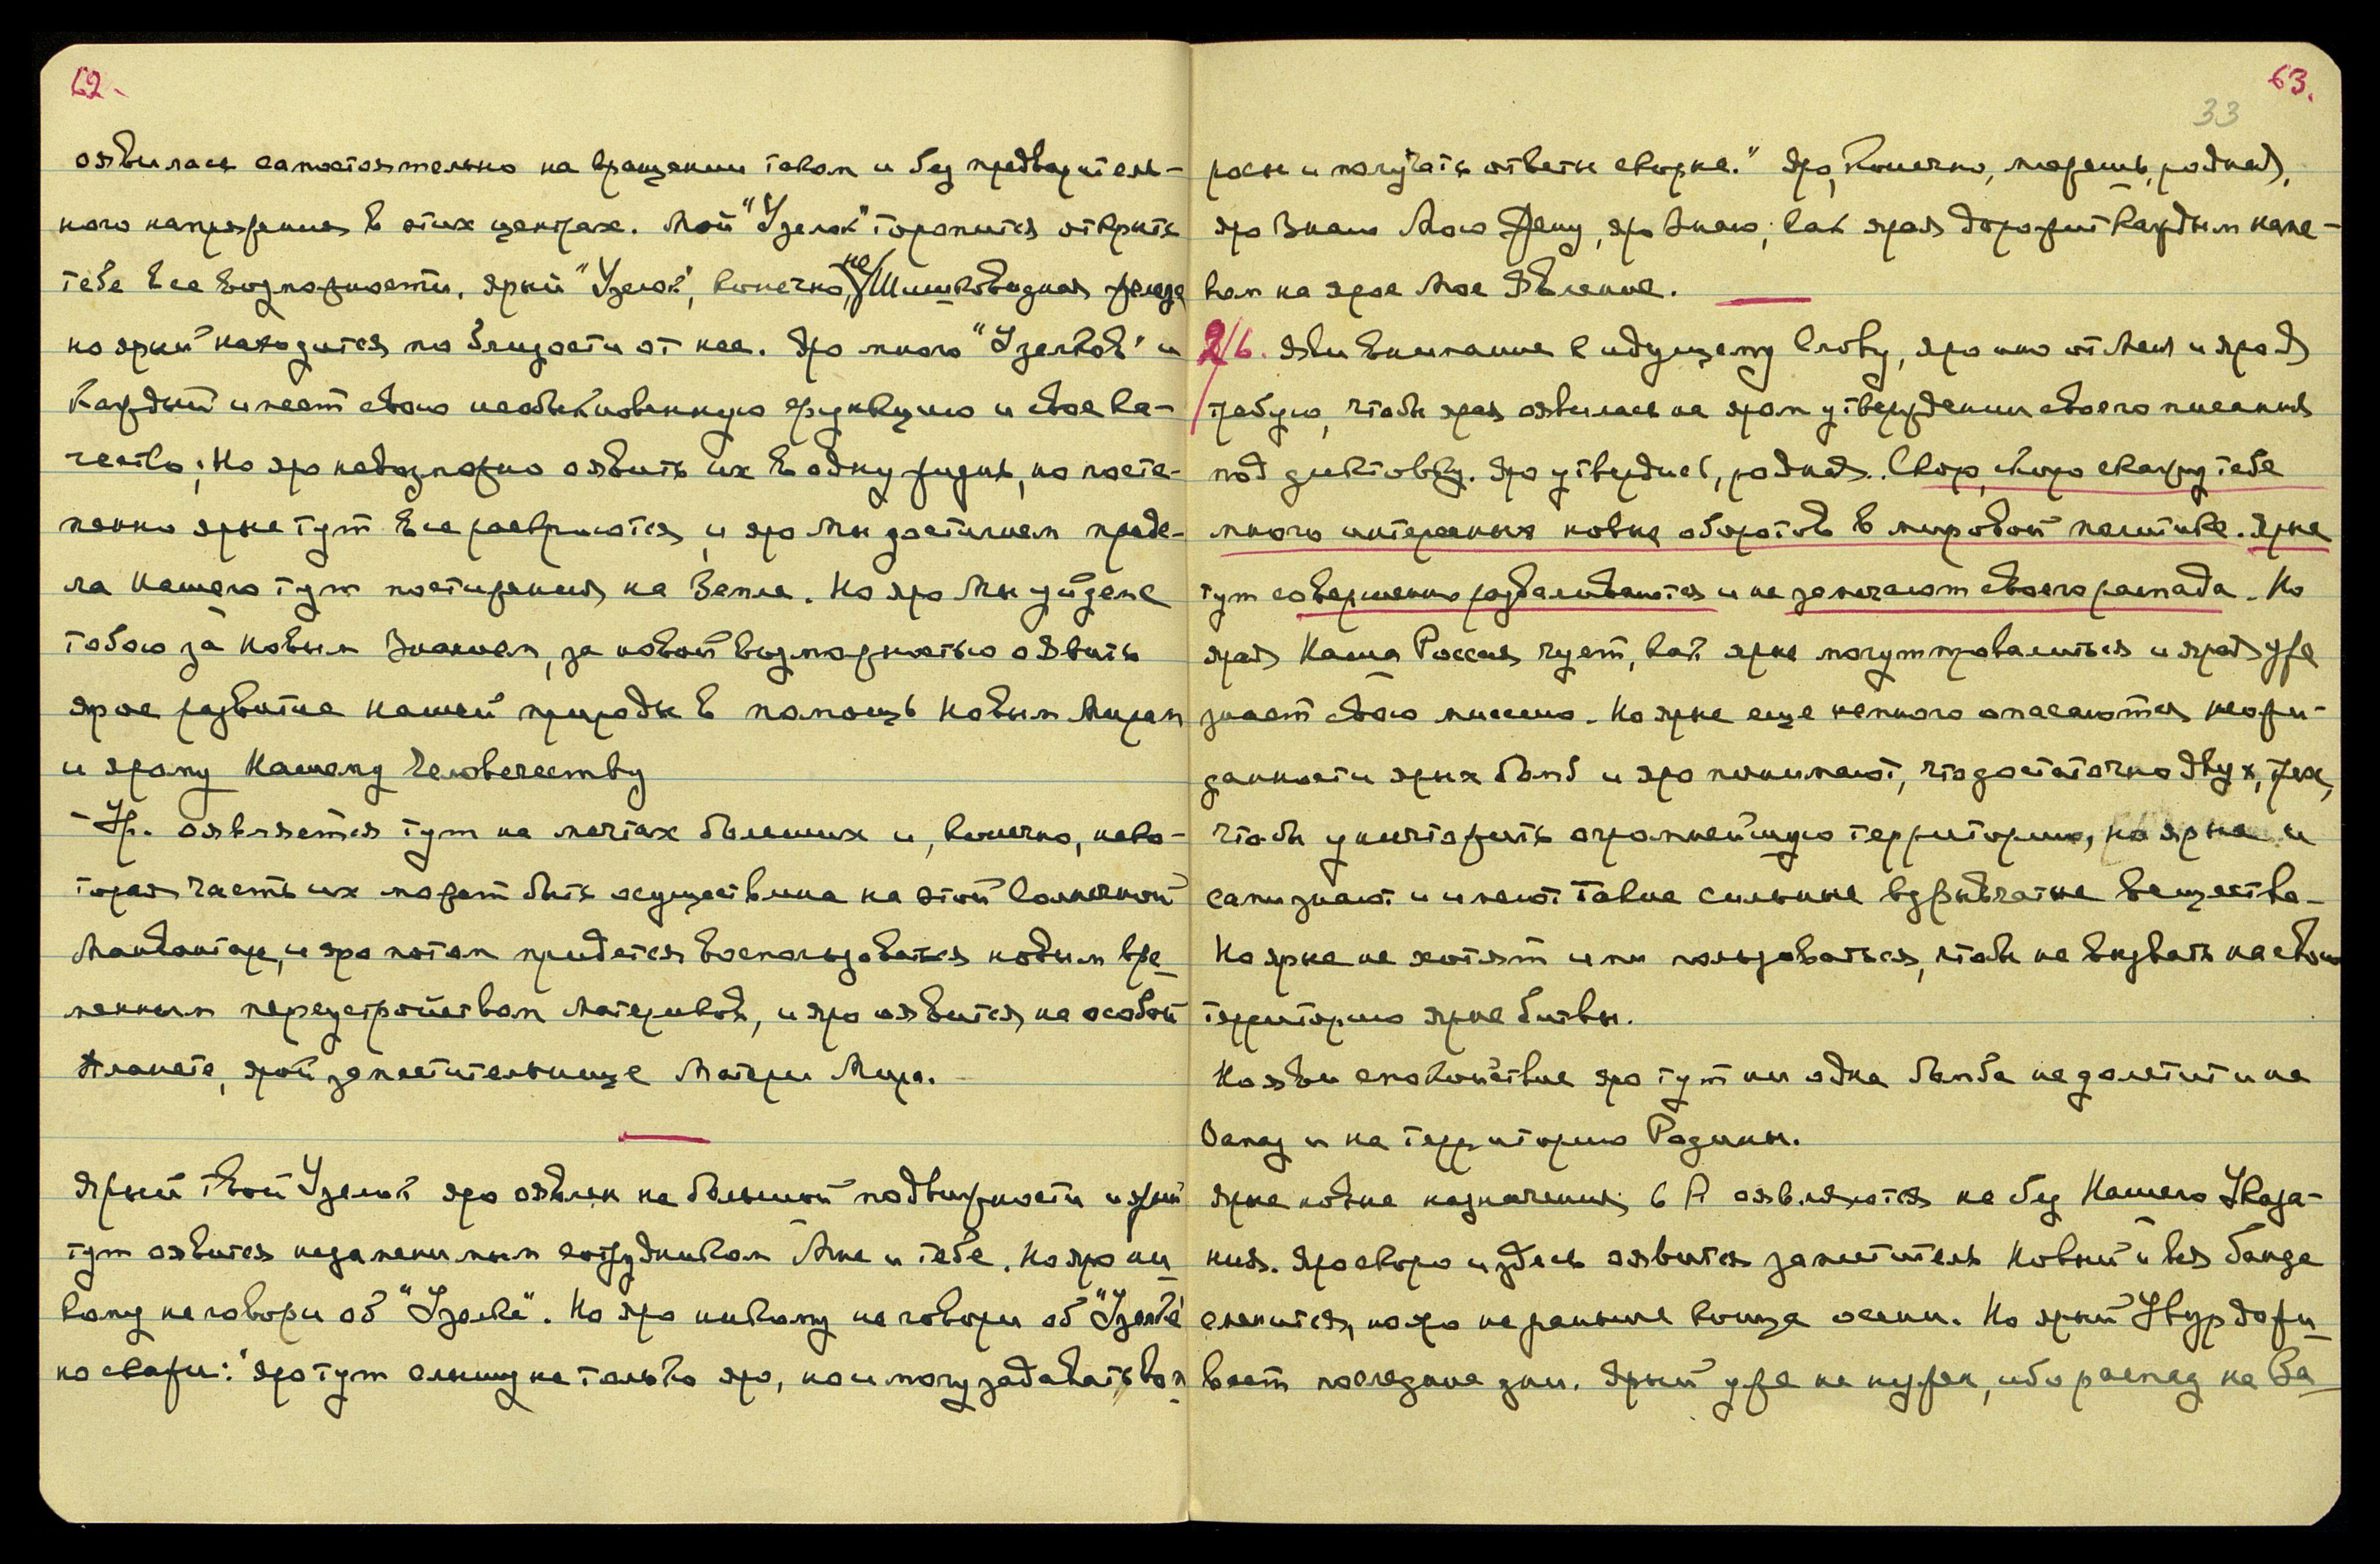 62.
оявилась самостоятельно на вращении таком и без предваритель-
ного напряжения в этих центрах. Мой "Узелок" торопится открыть
тебе все возможности. Ярый "Узелок", конечно, не Шишковидная железа
но ярый находится по близости от нее. Яро много "Узелков" и
каждый имеет свою необыкновенную функцию и свое ка-
чество; Но яро невозможно оявить их в одну жизнь, но посте-
пенно ярые тут все раскроются, и яро Мы достигнем преде-
ла нашего тут постижения на Земле. Но яро Мы уйдем с
тобою за новым Знанием, за новой возможностью оявить
ярое развитие нашей природы в помощь новым Мирам
и ярому Нашему Человечеству
- Ур. оявляется тут на мечтах больших и, конечно, неко-
торая часть их может быть осуществлена на этой солнечной
Манвантаре, и яро потом придется воспользоваться новым вре-
менным переустройством материков, и яро оявится на особой
планете, ярой заместительнице Матери Мира.
Ярый твой Узелок яро оявлен на большой подвижности и ярый
тут оявится незаменимым сотрудником Мне и тебе. Но яро ни-
кому не говори об "Узелке". Но яро никому не говори об "Узелке"
но скажи: "яро тут слышу не только яро, но и могу задавать воп-
63.
33
росы и получать ответы скорые." Яро, конечно, можешь, родная,
яро Знаю Мою Жену, яро Знаю, как ярая дорожит каждым наме-
ком на ярое Мое Явление.
2/6. Яви внимание к идущему Слову, яро оно от Меня и яро Я
требую, чтобы ярая оявилась на яром утверждении своего писания
под диктовку. Яро утвердись, родная. Скоро, скоро скажу тебе
много интересных новых оборотов в мировой политике. Ярые
тут совершенно разваливаются и не замечают своего распада. Но
ярая Наша Россия чует, как ярые могут провалиться и ярая уже
знает свою миссию. Но ярые еще немного опасаются неожи-
данности ярых бомб и яро понимают, что достаточно двух, трех,
чтобы уничтожить огромнейшую территорию, но ярые и
сами знают и имеют такие сильные взрывчатые вещества.
Но ярые не хотят ими пользоваться, чтобы не вызвать на свою
территорию ярые битвы.
Но яви спокойствие яро тут ни одна бомба не долетит и на
Запад и на территорию Родины.
Ярые новые назначения в А оявляются не без Нашего Указа-
ния. Яро скоро и здесь оявится заместитель новый и вся банда
сменится, но яро не раньше конца осени. Но ярый Неру дожи-
вает последние дни. Ярый уже не нужен, ибо распад на За-